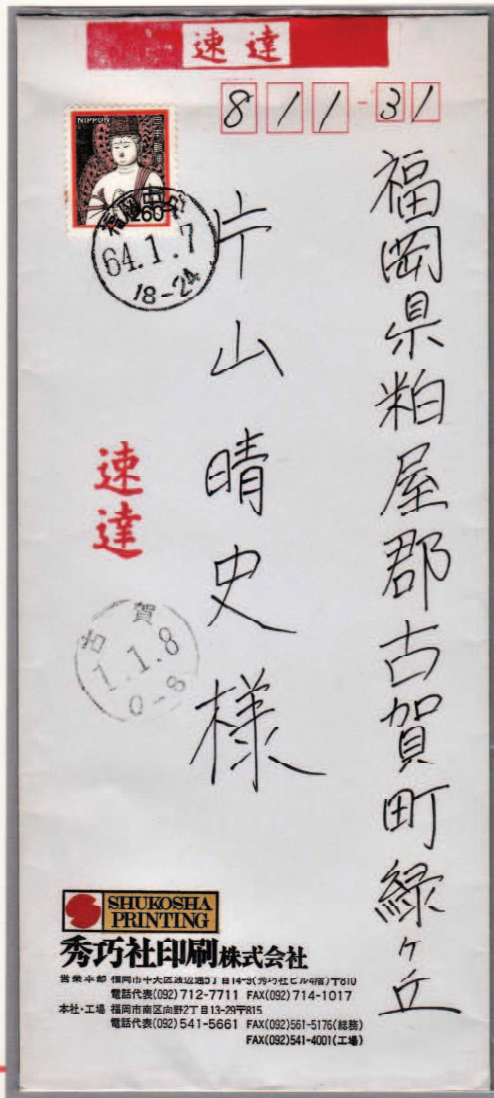 速達
811-31
NIPPON
日本郵便
260
福岡中央
64.1.7
18-24
福岡県粕屋郡古賀町緑ヶ丘
片山晴史様
速達
古賀
1.1.8
0-8
SHUKOSHA
PRINTING
秀巧社印刷株式会社
営業本部 福岡市中央区渡辺通5丁目14-9(秀巧社ビル4階)〒810
電話代表(092)712-7711 FAX(092)714-1017
本社・工場 福岡市南区向野2丁目13-29〒815
電話代表(092)541-5661 FAX(092)561-5176(総務)
FAX(092)541-4001(工場)